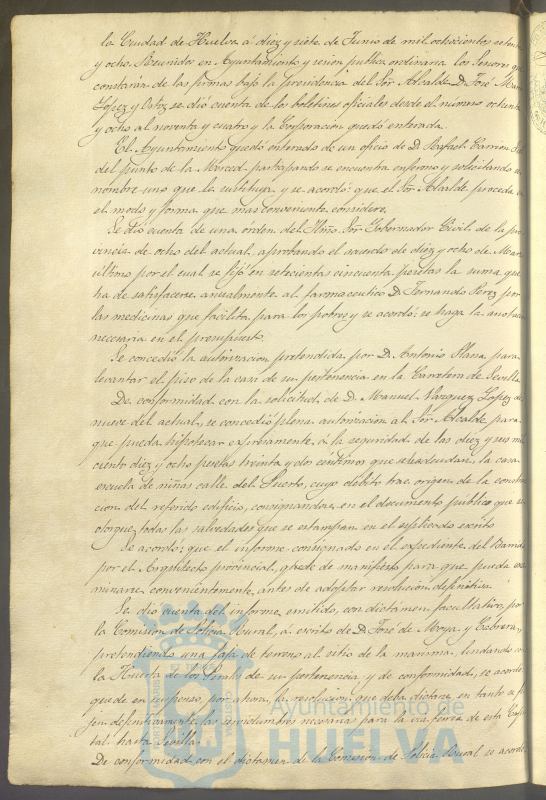 la Ciudad de Huelva á diez y siete de Junio de mil ochocientos setenta
y ocho. Reunidos en Ayuntamiento y sesion publica ordinaria los Señores que
constarán de las firmas bajo la presidencia del Sor. Alcalde D. José Maria
Lopez y Ortiz se dió cuenta de los boletines oficiales desde el número ochenta
y ocho al noventa y cuatro y la Corporacion quedó enterada.
El Ayuntamiento quedó enterado de un oficio de D. Rafael Carrion
del punto de la Merced participando se encuentra enfermo y solicitando se
nombre uno que le sustituya y se acordó: que el Sor. Alcalde proceda en
el modo y forma que mas conveniente considere.
Se dió cuenta de una orden del Ilmo. Sor. Gobernador Civil de la pro
vincia de ocho del actual, aprobando el acuerdo de diez y ocho de Marzo
último por el cual se fijó en setecientas cincuenta pesetas la suma que
ha de satisfacerse anualmente al farmaceutico D. Fernando Perez por
las medicinas que facilita para los pobres y se acordó: se haga la anotacion
necesaria en el presupuesto.
Se concedió la autorizacion pretendida por D. Antonio Plana para
levantar el piso de la casa de su pertenencia en la Carretera de Sevilla.
De conformidad con la solicitud de D. Manuel Vazquez Lopez de
nueve del actual, se concedió plena autorizacion al Sor. Alcalde para
que pueda hipotecar espresamente, á la seguridad de las diez y seis mil
ciento diez y ocho pesetas treinta y dos céntimos que se le adeudan, la casa
escuela de niñas calle del Puerto, cuyo débito trae origen de la construc
cion del referido edificio, consignandose en el documento publico que se
otorgue, todas las salvedades que se estampan en el esplicado escrito
Se acordó: que el informe consignado en el expediente del Barrido
por el Arquitecto provincial, quede de manifiesto para que pueda exa
minarse, convenientemente, antes de adoptar resolucion definitiva.
Se dió cuenta del informe, emitido, con dictamen facultativo, por
la Comision de Policia Rural, á escrito de D. José de Moya y Cabrera,
pretendiendo una faja de terreno al sitio de la marisma, lindando con
la Huerta de los Pinales de su pertenencia y de conformidad, se acordó:
quede en suspenso por ahora, la resolucion que deba dictarse en tanto se fi
jen definitivamente las servidumbres necesarias para la via ferrea de esta Capi
tal hasta Sevilla.
De conformidad con el dictamen de la Comision de Policia Rural se acordó
Ayuntamiento de
HUELVA